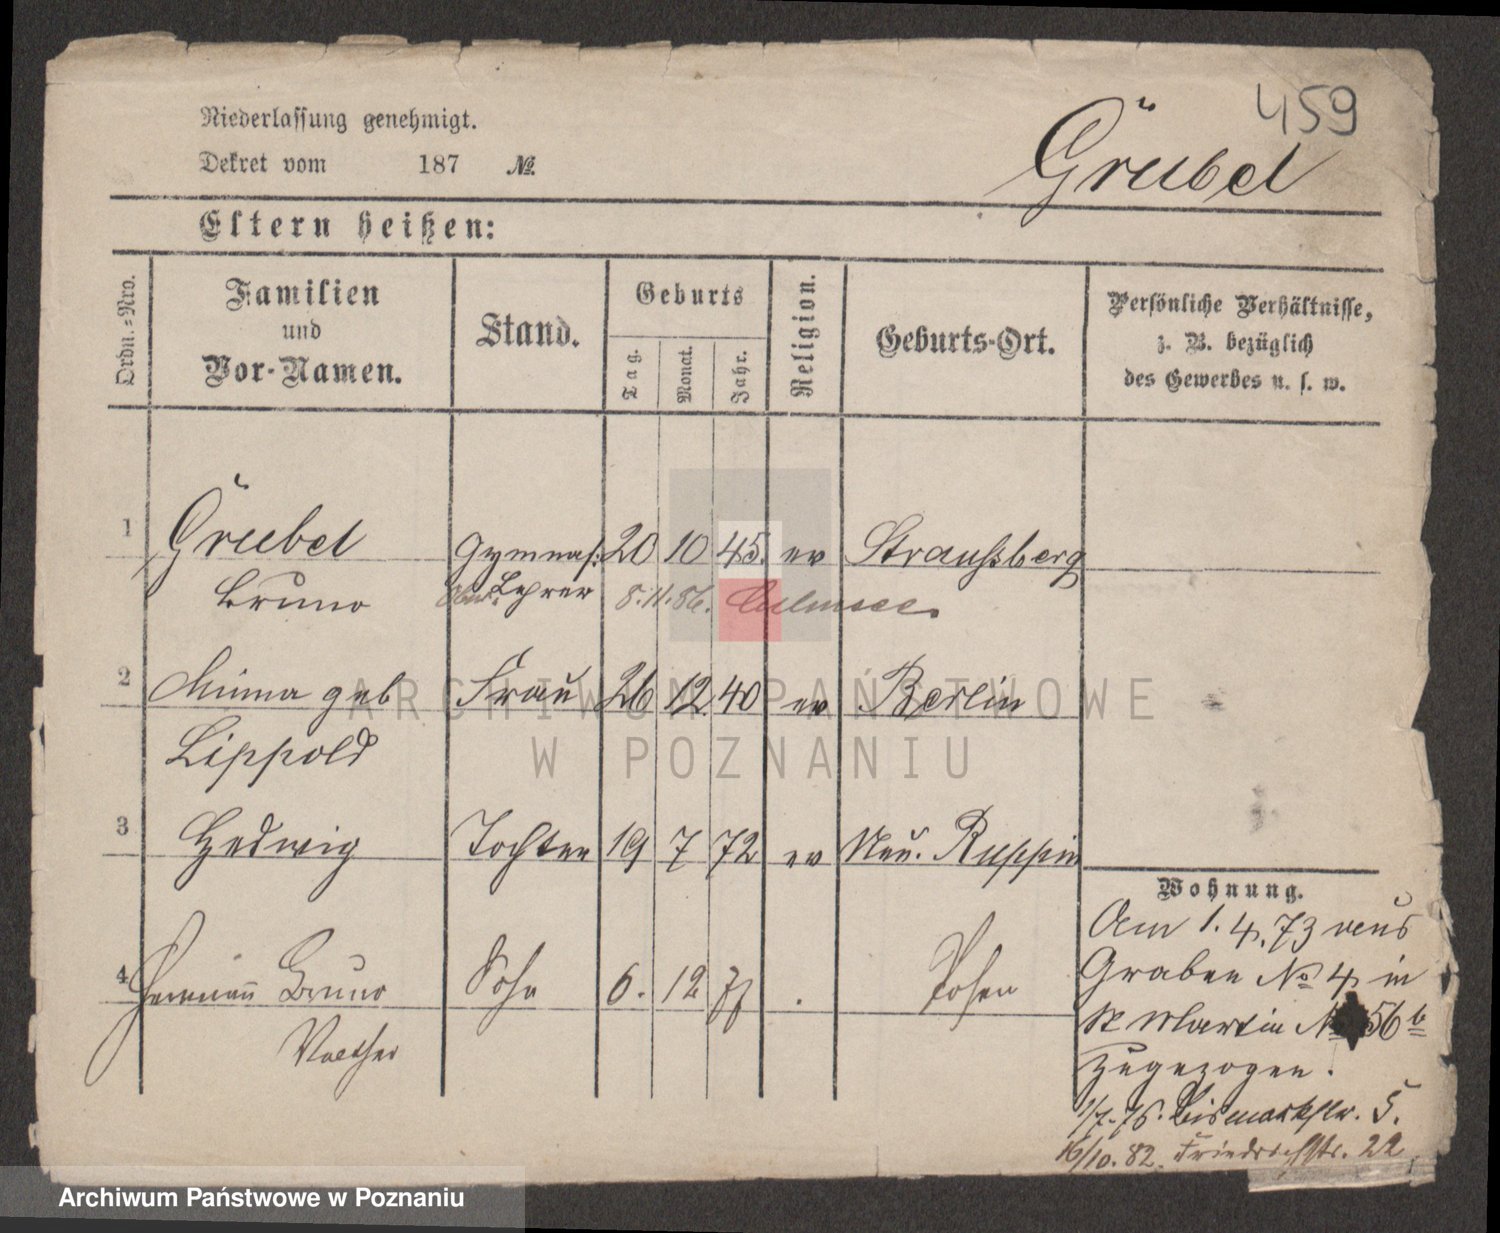 459
Niederlassung genehmigt.
Dekret vom 187 №.
Grubel
Eltern heißen:
Ordn.-Nro.
Familien
und
Vor-Namen.
Stand.
Geburts
Tag.
Monat.
Jahr.
Religion.
Geburts-Ort.
Persönliche Verhältnisse,
z. B. bezüglich
des Gewerbes u. s. w.
1 Grubel Gymnas: 20 10 45. ev Straußberg
Bruno Ober Lehrer 8.11.86. Culmsee.
2 Minna geb Frau 26 12 40 ev Berlin
Lippold
3 Hedwig Tochter 19 7 72 ev Neu. Ruppin
Wohnung.
4 Hermann Bruno Sohn 6. 12 77 . Posen
Walther
Am 1.4.73 aus
Graben No 4 in
St Martin No 56 b
zugezogen.
1/7.76. Bismarkstr. 5.
16/10.82. Friedrichstr. 22
ARCHIWUM PAŃSTWOWE
W POZNANIU
Archiwum Państwowe w Poznaniu